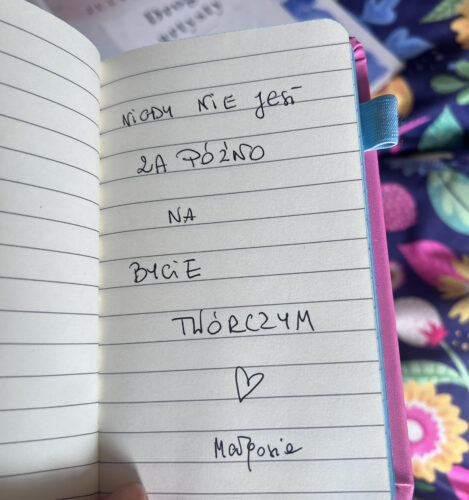 Droga
artysty
NIGDY NIE jest
ZA PÓŹNO
NA
BYCIE
TWÓRCZYM
♡
Małgosia